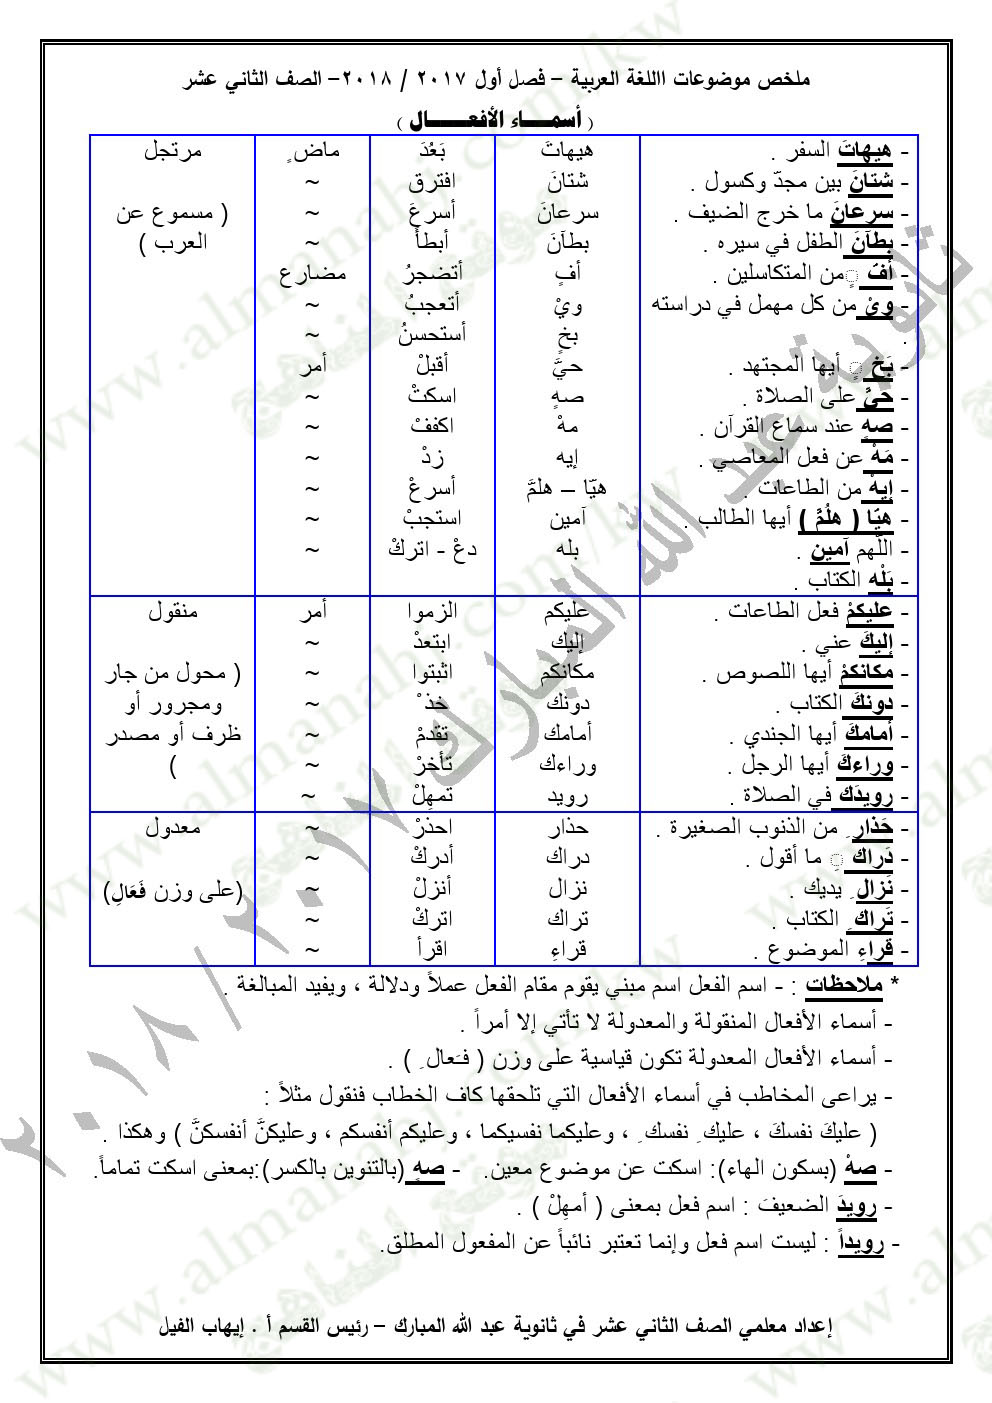 ملخص موضوعات االلغة العربية – فصل أول ٢٠١٧ / ٢٠١٨– الصف الثاني عشر
( أسمـــــاء الأفعـــــــال )
- هيهاتَ السفر . هيهاتَ بَعُدَ ماضٍ مرتجل
- شتانَ بين مجدّ وكسول . شتانَ افترق ~
- سرعانَ ما خرج الضيف . سرعانَ أسرعَ ~ ( مسموع عن
- بطآنَ الطفل في سيره . بطآنَ أبطأَ ~ العرب )
- أفٍّ من المتكاسلين . أفٍ أتضجرُ مضارع
- ويْ من كل مهمل في دراسته ويْ أتعجبُ ~
. بخٍ أستحسنُ ~
- بَخٍ أيها المجتهد . حيَّ أقبلْ أمر
- حيَّ على الصلاة . صهٍ اسكتْ ~
- صهٍ عند سماع القرآن . مهْ اكففْ ~
- مَهْ عن فعل المعاصي . إيه زدْ ~
- إيهْ من الطاعات . هيّا – هلمَّ أسرعْ ~
- هيّا ( هلُمَّ ) أيها الطالب . آمين استجبْ ~
- اللّهم آمين . بله دعْ - اتركْ ~
- بَلْه الكتاب .
- عليكمْ فعل الطاعات . عليكم الزموا أمر منقول
- إليكَ عني . إليك ابتعدْ ~
- مكانكمْ أيها اللصوص . مكانكم اثبتوا ~ ( محول من جار
- دونكَ الكتاب . دونك خذْ ~ ومجرور أو
- أمامكَ أيها الجندي . أمامك تقدمْ ~ ظرف أو مصدر
- وراءكَ أيها الرجل . وراءك تأخرْ ~ )
- رويدَك في الصلاة . رويد تمهلْ ~
- حَذارِ من الذنوب الصغيرة . حذار احذرْ ~ معدول
- دَراكِ ما أقول . دراك أدركْ ~
- نَزالِ يديك . نزال أنزلْ ~ (على وزن فَعَالِ)
- تَراكِ الكتاب . تراك اتركْ ~
- قراءِ الموضوع . قراءِ اقرأ ~
* ملاحظات : - اسم الفعل اسم مبني يقوم مقام الفعل عملاً ودلالة ، ويفيد المبالغة .
- أسماء الأفعال المنقولة والمعدولة لا تأتي إلا أمراً .
- أسماء الأفعال المعدولة تكون قياسية على وزن ( فـَعالِ ) .
- يراعى المخاطب في أسماء الأفعال التي تلحقها كاف الخطاب فنقول مثلاً :
( عليكَ نفسكَ ، عليكِ نفسكِ ، وعليكما نفسيكما ، وعليكم أنفسكم ، وعليكنَّ أنفسكنَّ ) وهكذا .
- صهْ (بسكون الهاء): اسكت عن موضوع معين. - صهٍ (بالتنوين بالكسر):بمعنى اسكت تماماً.
- رويدَ الضعيفَ : اسم فعل بمعنى ( أمهِلْ ) .
- رويداً : ليست اسم فعل وإنما تعتبر نائباً عن المفعول المطلق.
إعداد معلمي الصف الثاني عشر في ثانوية عبد الله المبارك – رئيس القسم أ . إيهاب الفيل
ثانوية عبد الله المبارك ٢٠١٧/ ٢٠١٨
www.almanahj.com/kw
موقع المناهج